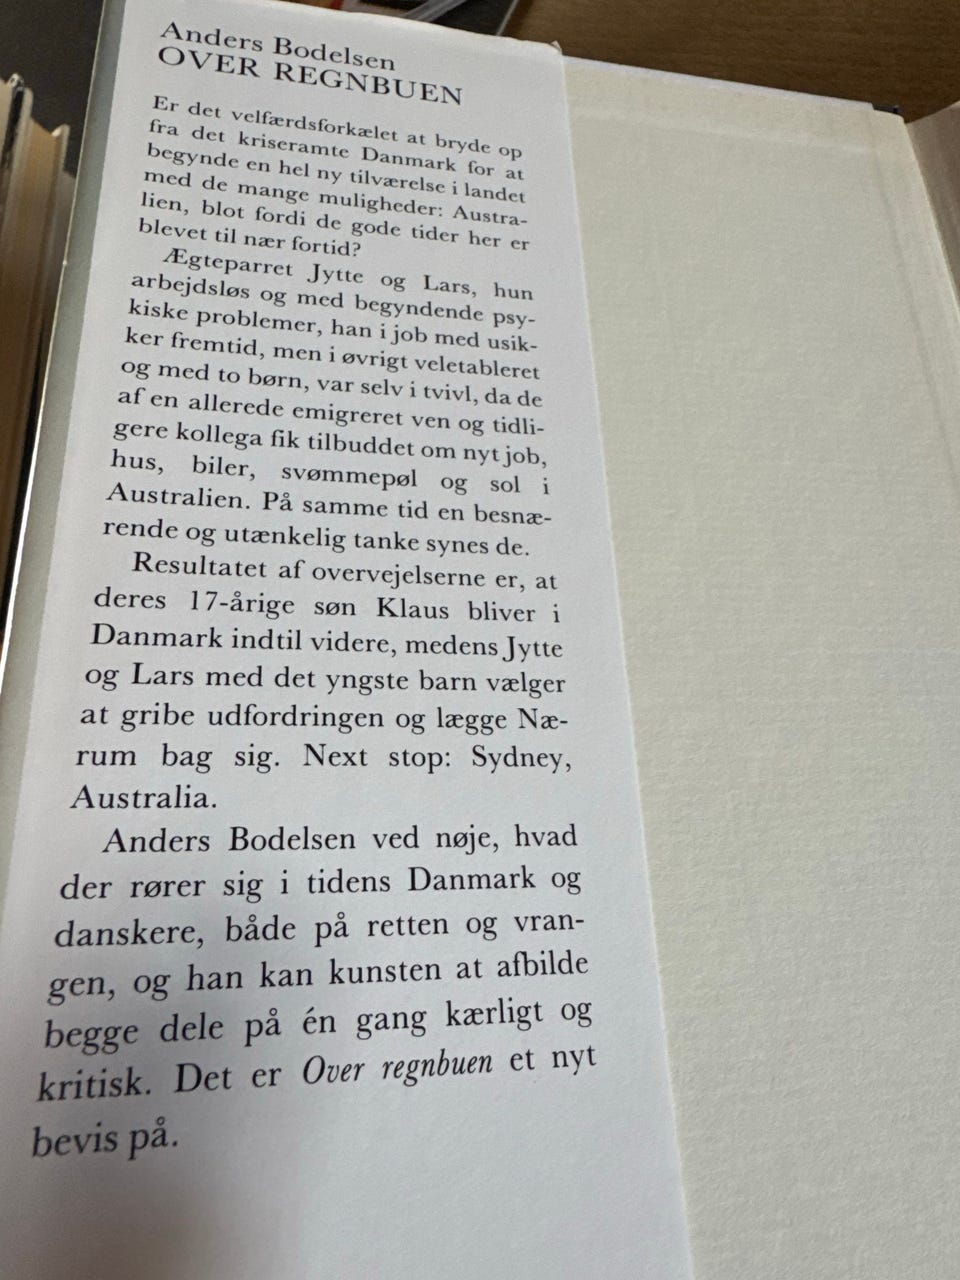 Anders Bodelsen
OVER REGNBUEN
Er det velfærdsforkælet at bryde op
fra det kriseramte Danmark for at
begynde en hel ny tilværelse i landet
med de mange muligheder: Austra-
lien, blot fordi de gode tider her er
blevet til nær fortid?
Ægteparret Jytte og Lars, hun
arbejdsløs og med begyndende psy-
kiske problemer, han i job med usik-
ker fremtid, men i øvrigt veletableret
og med to børn, var selv i tvivl, da de
af en allerede emigreret ven og tidli-
gere kollega fik tilbuddet om nyt job,
hus, biler, svømmepøl og sol i
Australien. På samme tid en besnæ-
rende og utænkelig tanke synes de.
Resultatet af overvejelserne er, at
deres 17-årige søn Klaus bliver i
Danmark indtil videre, medens Jytte
og Lars med det yngste barn vælger
at gribe udfordringen og lægge Næ-
rum bag sig. Next stop: Sydney,
Australia.
Anders Bodelsen ved nøje, hvad
der rører sig i tidens Danmark og
danskere, både på retten og vran-
gen, og han kan kunsten at afbilde
begge dele på én gang kærligt og
kritisk. Det er Over regnbuen et nyt
bevis på.